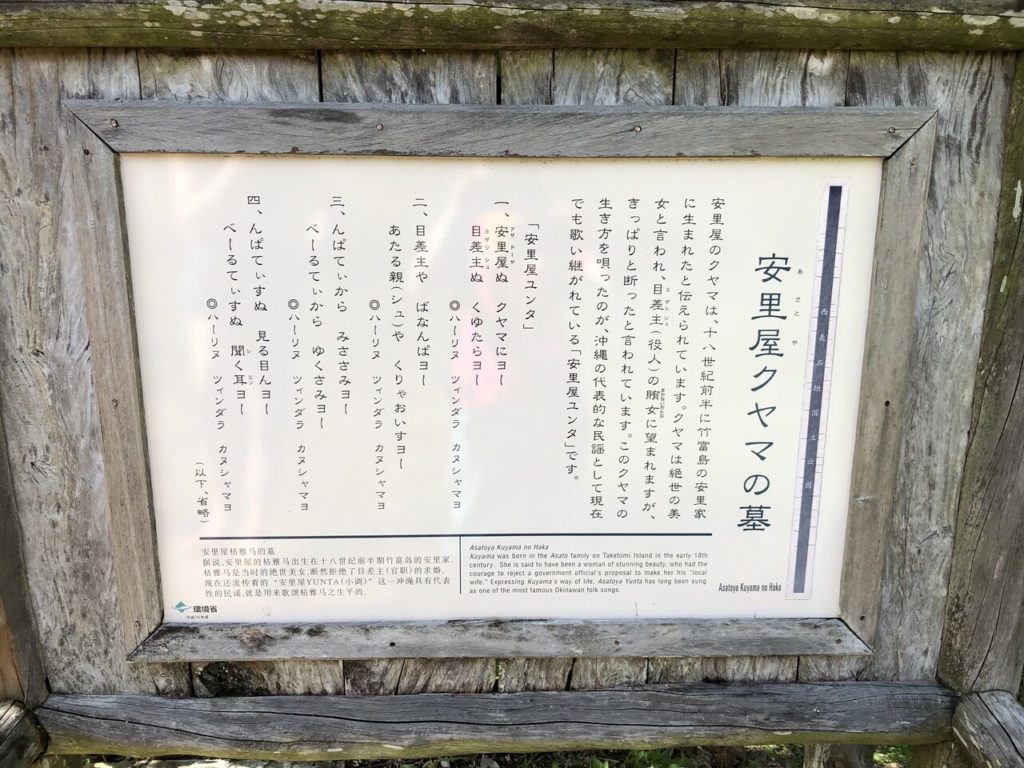 西表石垣国立公園
安里屋クヤマの墓
あさとや
Asatoya Kuyama no Haka
安里屋のクヤマは、十八世紀前半に竹富島の安里家
に生まれたと伝えられています。クヤマは絶世の美
女と言われ、目差主(役人)の賄女に望まれますが、
ミザシシュ
まかないおんな
きっぱりと断ったと言われています。このクヤマの
生き方を唄ったのが、沖縄の代表的な民謡として現在
でも歌い継がれている「安里屋ユンタ」です。
「安里屋ユンタ」
一、安里屋ぬ クヤマにヨー
アサドーヤ
目差主ぬ くゆたらヨー
ミザシシュ
◎ハーリヌ ツィンダラ カヌシャマヨ
二、目差主や ばなんぱヨー
あたる親(シュ)や くりゃおいすヨー
◎ハーリヌ ツィンダラ カヌシャマヨ
三、んぱてぃから みささみヨー
べーるてぃから ゆくさみヨー
◎ハーリヌ ツィンダラ カヌシャマヨ
四、んぱてぃすぬ 見る目んヨー
べーるてぃすぬ 聞く耳ヨー
◎ハーリヌ ツィンダラ カヌシャマヨ
(以下、省略)
安里屋枯雅马的墓
据说,安里屋的枯雅马出生在十八世紀前半期竹富岛的安里家.
枯雅马是当时的绝世美女,断然拒绝了目差主(官职)的求婚.
现在还流传着的“安里屋YUNTA(小调)”这一冲绳具有代表
性的民谣,就是用来歌颂枯雅马之生平的.
Asatoya Kuyama no Haka
Kuyama was born in the Asato family on Taketomi Island in the early 18th
century. She is said to have been a woman of stunning beauty, who had the
courage to reject a government official's proposal to make her his "local
wife." Expressing Kuyama's way of life, Asatoya Yunta has long been sung
as one of the most famous Okinawan folk songs.
環境省